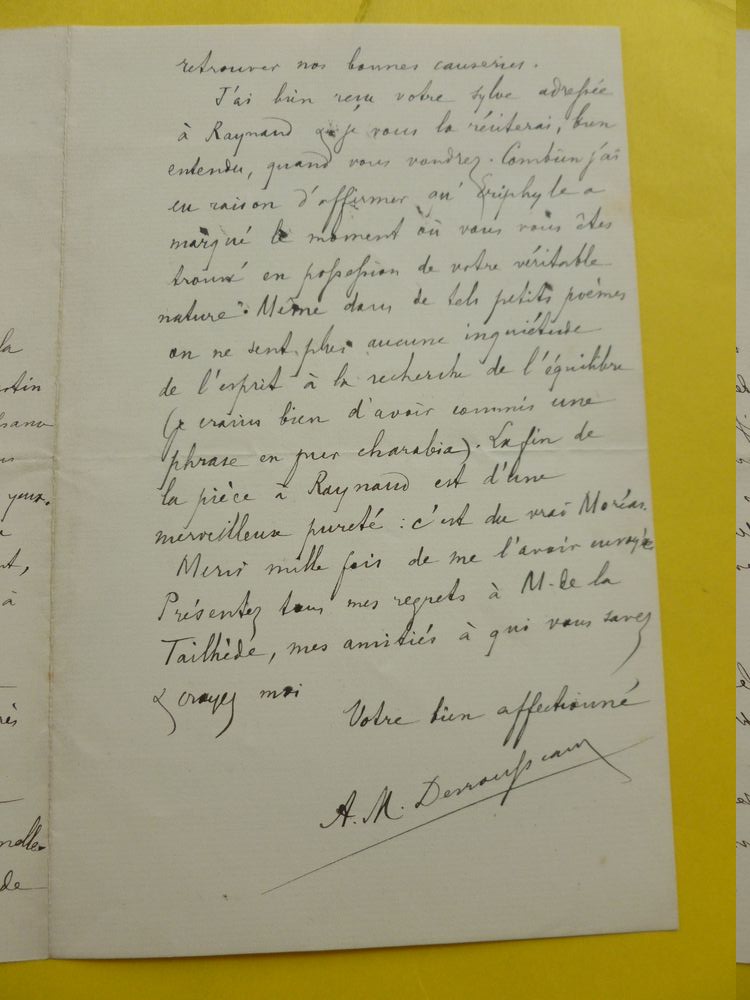 retrouver nos bonnes causeries.
J'ai bien reçu votre sylve adressée
à Raynaud & je vous la réciterai, bien
entendu, quand vous voudrez. Combien j'ai
eu raison d'affirmer qu'Eriphyle a
marqué le moment où vous vous êtes
trouvé en possession de votre véritable
nature. Même dans de tels petits poèmes
on ne sent plus aucune inquiétude
de l'esprit à la recherche de l'équilibre
(je crains bien d'avoir commis une
phrase en pur charabia). La fin de
la pièce à Raynaud est d'une
merveilleuse pureté : c'est du vrai Moréas.
Merci mille fois de me l'avoir envoyée
Présentez tous mes regrets à M. de la
Tailhède, mes amitiés à qui vous savez
& croyez moi
Votre bien affectionné
A. M. Desrousseaux
la
yeux.
à
de